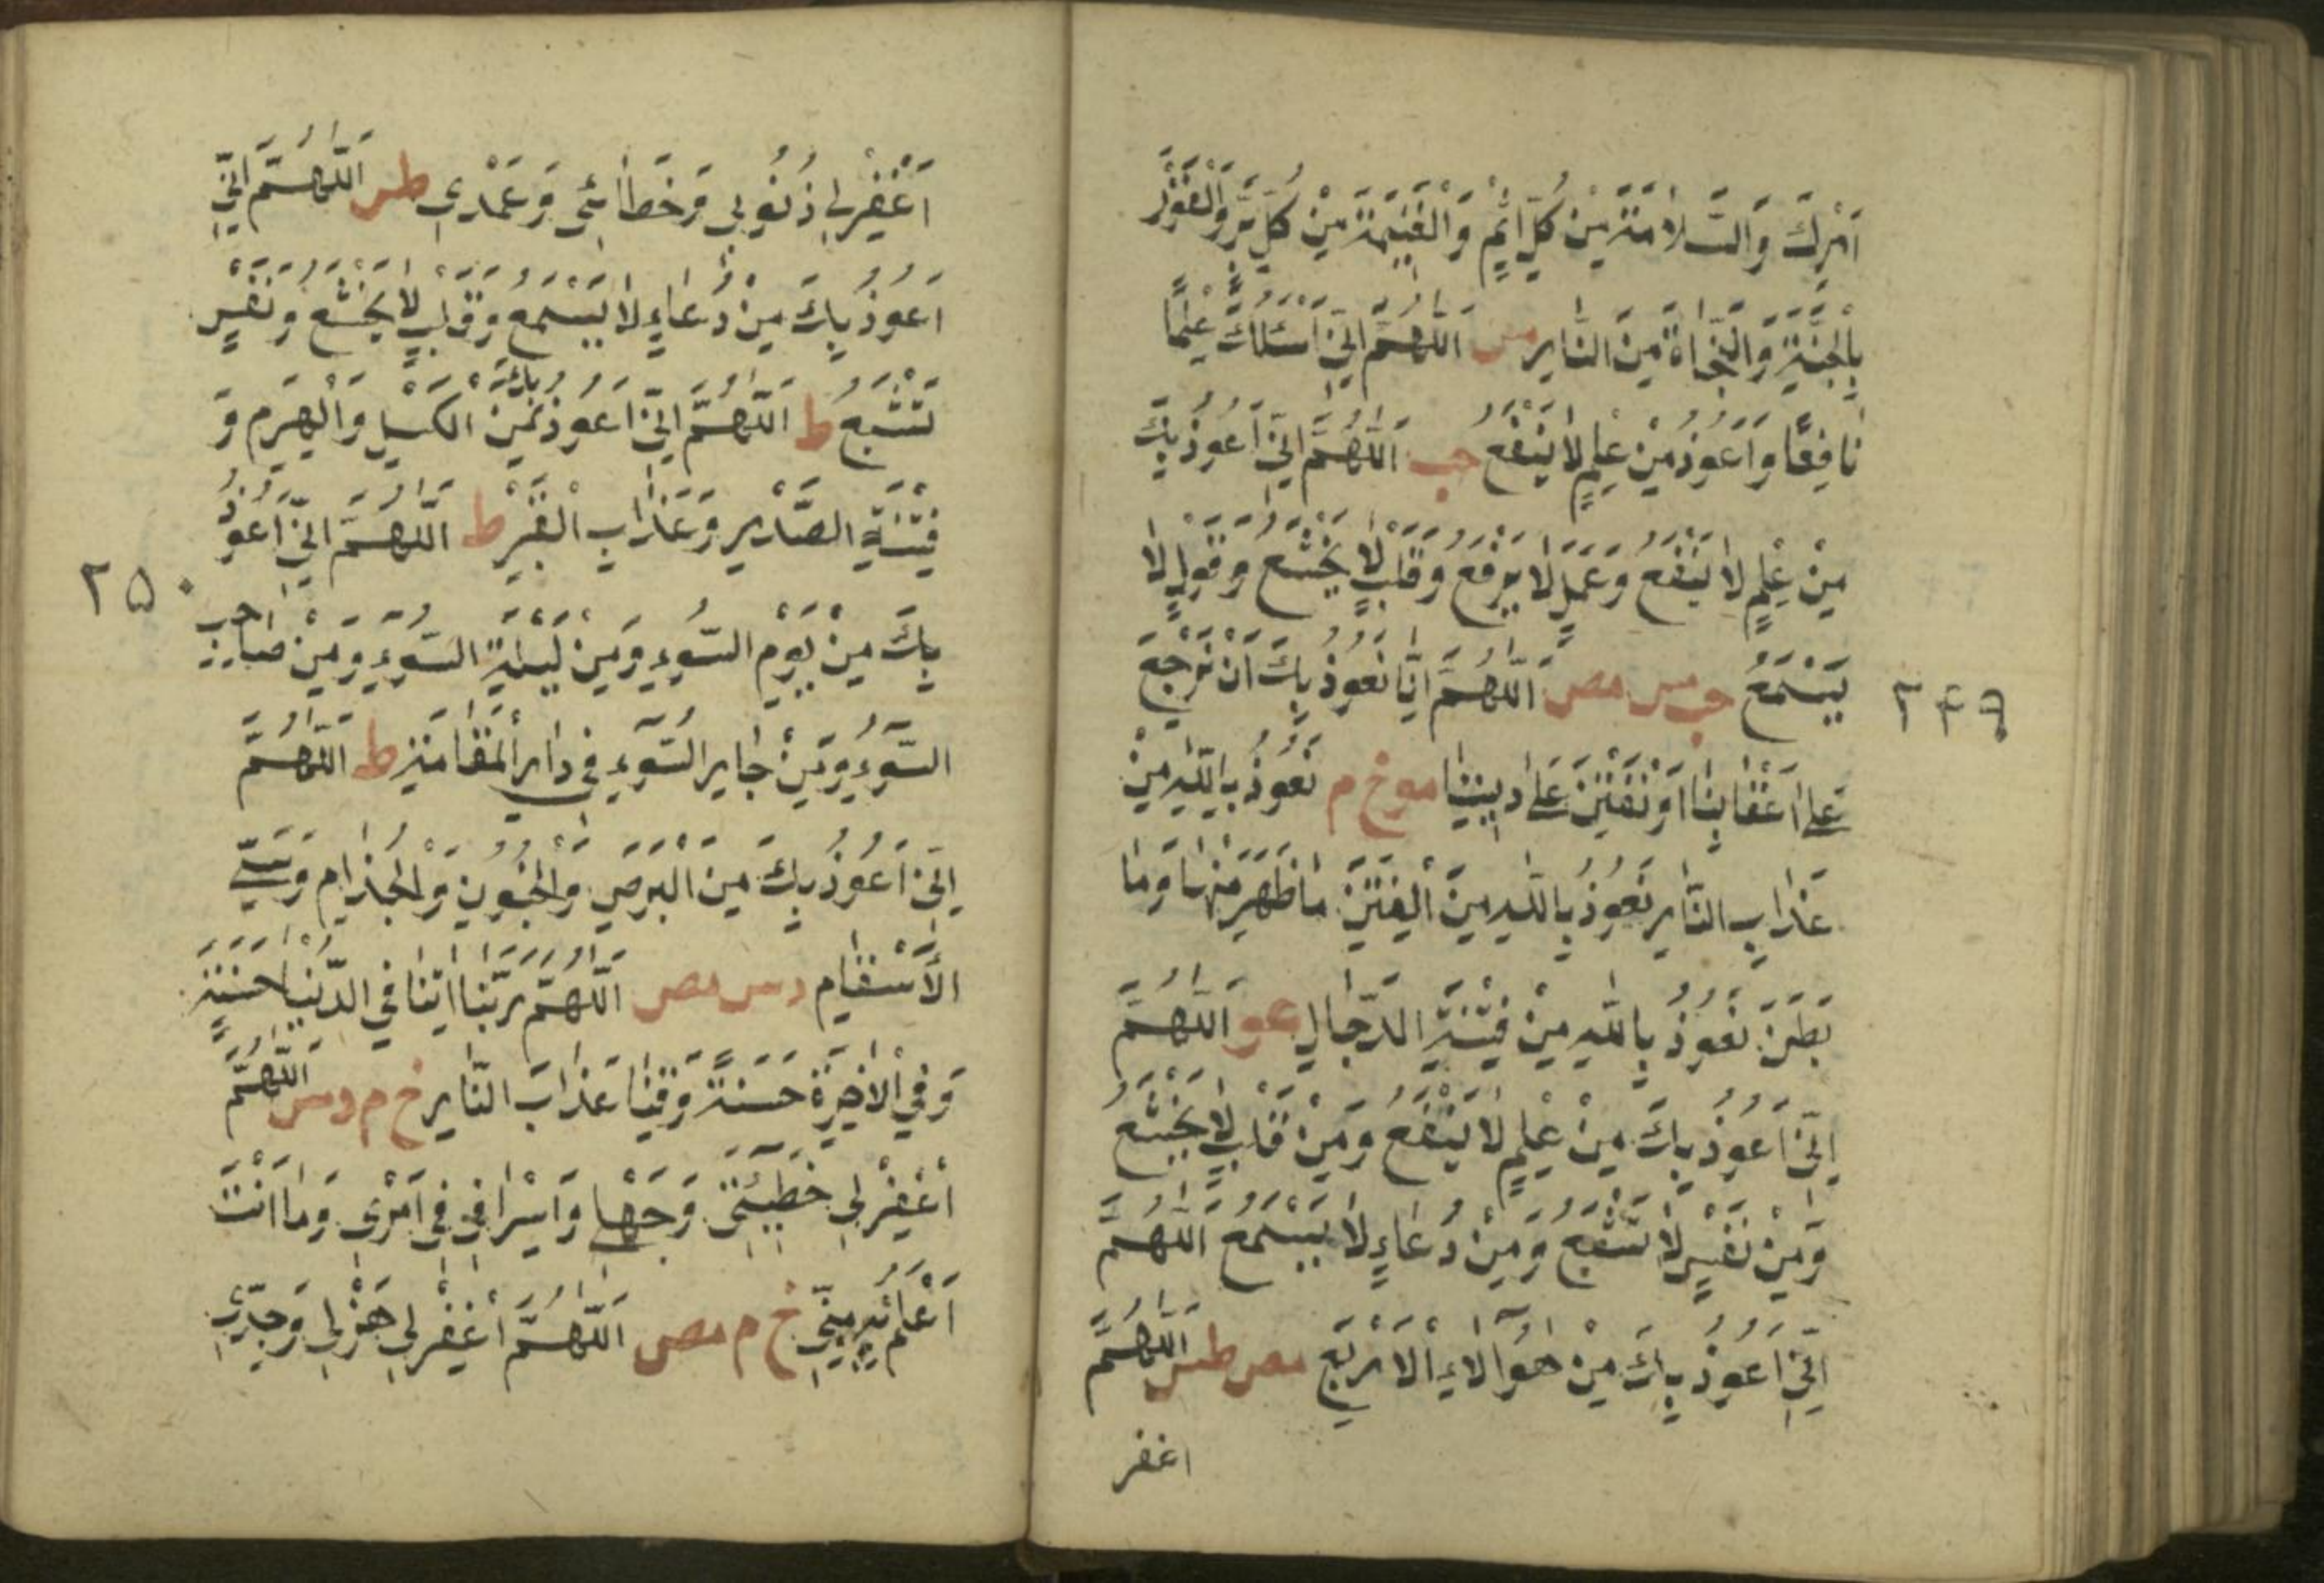 اَمْرِكَ وَالسَّلَامَةَ مِنْ كُلِّ اِثْمٍ وَالْغَنِيمَةَ مِنْ كُلِّ بِرٍّ وَالْفَوْزَ
بِالْجَنَّةِ وَالنَّجَاةَ مِنَ النَّارِ مس اَللّٰهُمَّ اِنِّي اَسْئَلُكَ عِلْمًا
نَافِعًا وَاَعُوذُ مِنْ عِلْمٍ لَا يَنْفَعُ حب اَللّٰهُمَّ اِنِّي اَعُوذُ بِكَ
مِنْ عِلْمٍ لَا يَنْفَعُ وَعَمَلٍ لَا يُرْفَعُ وَقَلْبٍ لَا يَخْشَعُ وَقَوْلٍ لَا
يُسْمَعُ حب مس مص اَللّٰهُمَّ اِنَّا نَعُوذُ بِكَ اَنْ نَرْجِعَ
عَلٰى اَعْقَابِنَا اَوْ نُفْتَنَ عَلٰى دِينِنَا موخ م نَعُوذُ بِاللّٰهِ مِنْ
عَذَابِ النَّارِ نَعُوذُ بِاللّٰهِ مِنَ الْفِتَنِ مَا ظَهَرَ مِنْهَا وَمَا
بَطَنَ نَعُوذُ بِاللّٰهِ مِنْ فِتْنَةِ الدَّجَّالِ عو اَللّٰهُمَّ
اِنِّي اَعُوذُ بِكَ مِنْ عِلْمٍ لَا يَنْفَعُ وَمِنْ قَلْبٍ لَا يَخْشَعُ
وَمِنْ نَفْسٍ لَا تَشْبَعُ وَمِنْ دُعَاءٍ لَا يُسْمَعُ اَللّٰهُمَّ
اِنِّي اَعُوذُ بِكَ مِنْ هٰؤُلَاءِ الْاَرْبَعِ مص طس اَللّٰهُمَّ
اغفر
٢٤٩
اَغْفِرْ لِي ذُنُوبِي وَخَطَائِي وَعَمْدِي طس اَللّٰهُمَّ اِنِّي
اَعُوذُ بِكَ مِنْ دُعَاءٍ لَا يُسْمَعُ وَقَلْبٍ لَا يَخْشَعُ وَنَفْسٍ
تَشْبَعُ ط اَللّٰهُمَّ اِنِّي اَعُوذُ بِكَ مِنَ الْكَسَلِ وَالْهَرَمِ وَ
فِتْنَةِ الصَّدْرِ وَعَذَابِ الْقَبْرِ ط اَللّٰهُمَّ اِنِّي اَعُوذُ
بِكَ مِنْ يَوْمِ السُّوءِ وَمِنْ لَيْلَةِ السُّوءِ وَمِنْ صَاحِبِ
السُّوءِ وَمِنْ جَارِ السُّوءِ فِي دَارِ الْمُقَامَةِ ط اَللّٰهُمَّ
اِنِّي اَعُوذُ بِكَ مِنَ الْبَرَصِ وَالْجُنُونِ وَالْجُذَامِ وَسَيِّئِ
الْاَسْقَامِ د س مص اَللّٰهُمَّ رَبَّنَا اٰتِنَا فِي الدُّنْيَا حَسَنَةً
وَفِي الْاٰخِرَةِ حَسَنَةً وَقِنَا عَذَابَ النَّارِ خ م د س اَللّٰهُمَّ
اغْفِرْ لِي خَطِيئَتِي وَجَهْلِي وَاِسْرَافِي فِي اَمْرِي وَمَا اَنْتَ
اَعْلَمُ بِهِ مِنِّي خ م مص اَللّٰهُمَّ اغْفِرْ لِي هَزْلِي وَجِدِّي
٢٥٠